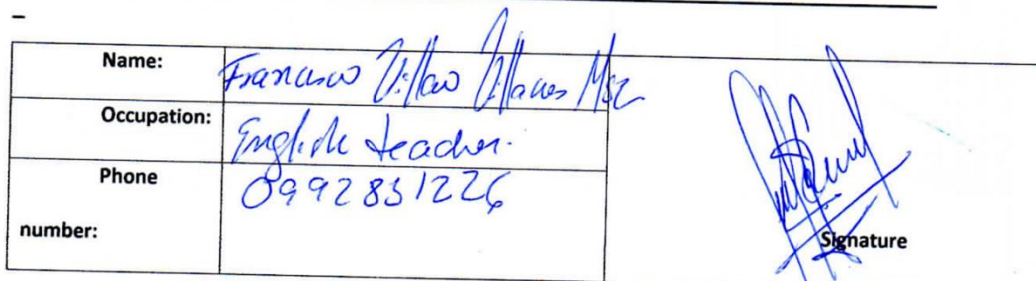 Name: Francisco Villao Villacres Msc
Occupation: English teacher.
Phone number: 0992831226
Signature